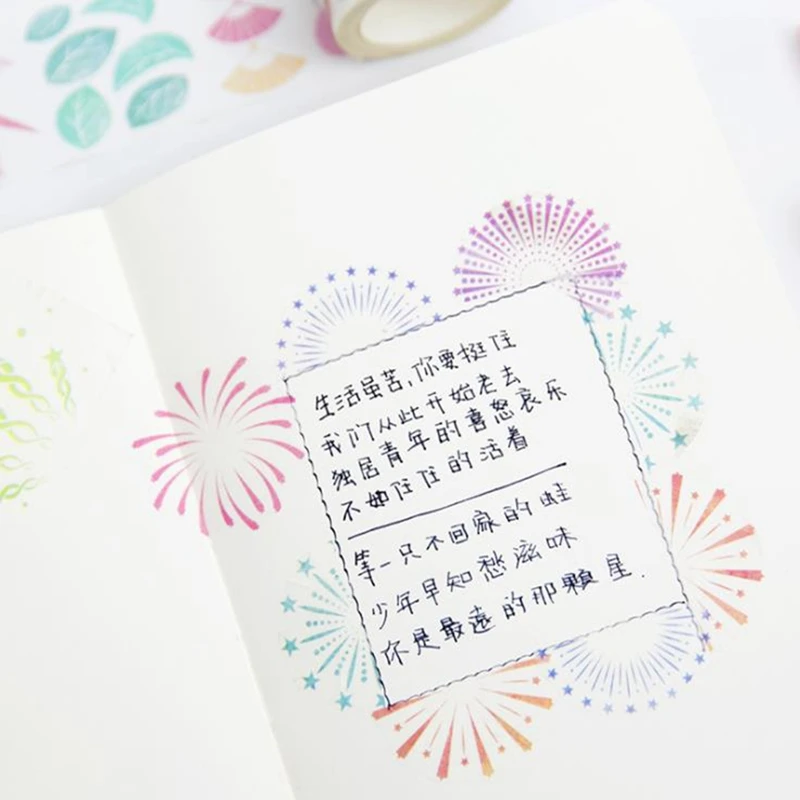 生活虽苦,你要挺住
我们从此开始老去
独居青年的喜怒哀乐
不如任性的活着
等一只不回家的蛙
少年早知愁滋味
你是最远的那颗星.